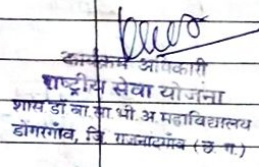 कार्यक्रम अधिकारी
राष्ट्रीय सेवा योजना
शास डॉ बा.सा.भी.अ.महाविद्यालय
डोंगरगाँव, जि. राजनांदगाँव (छ. ग.)